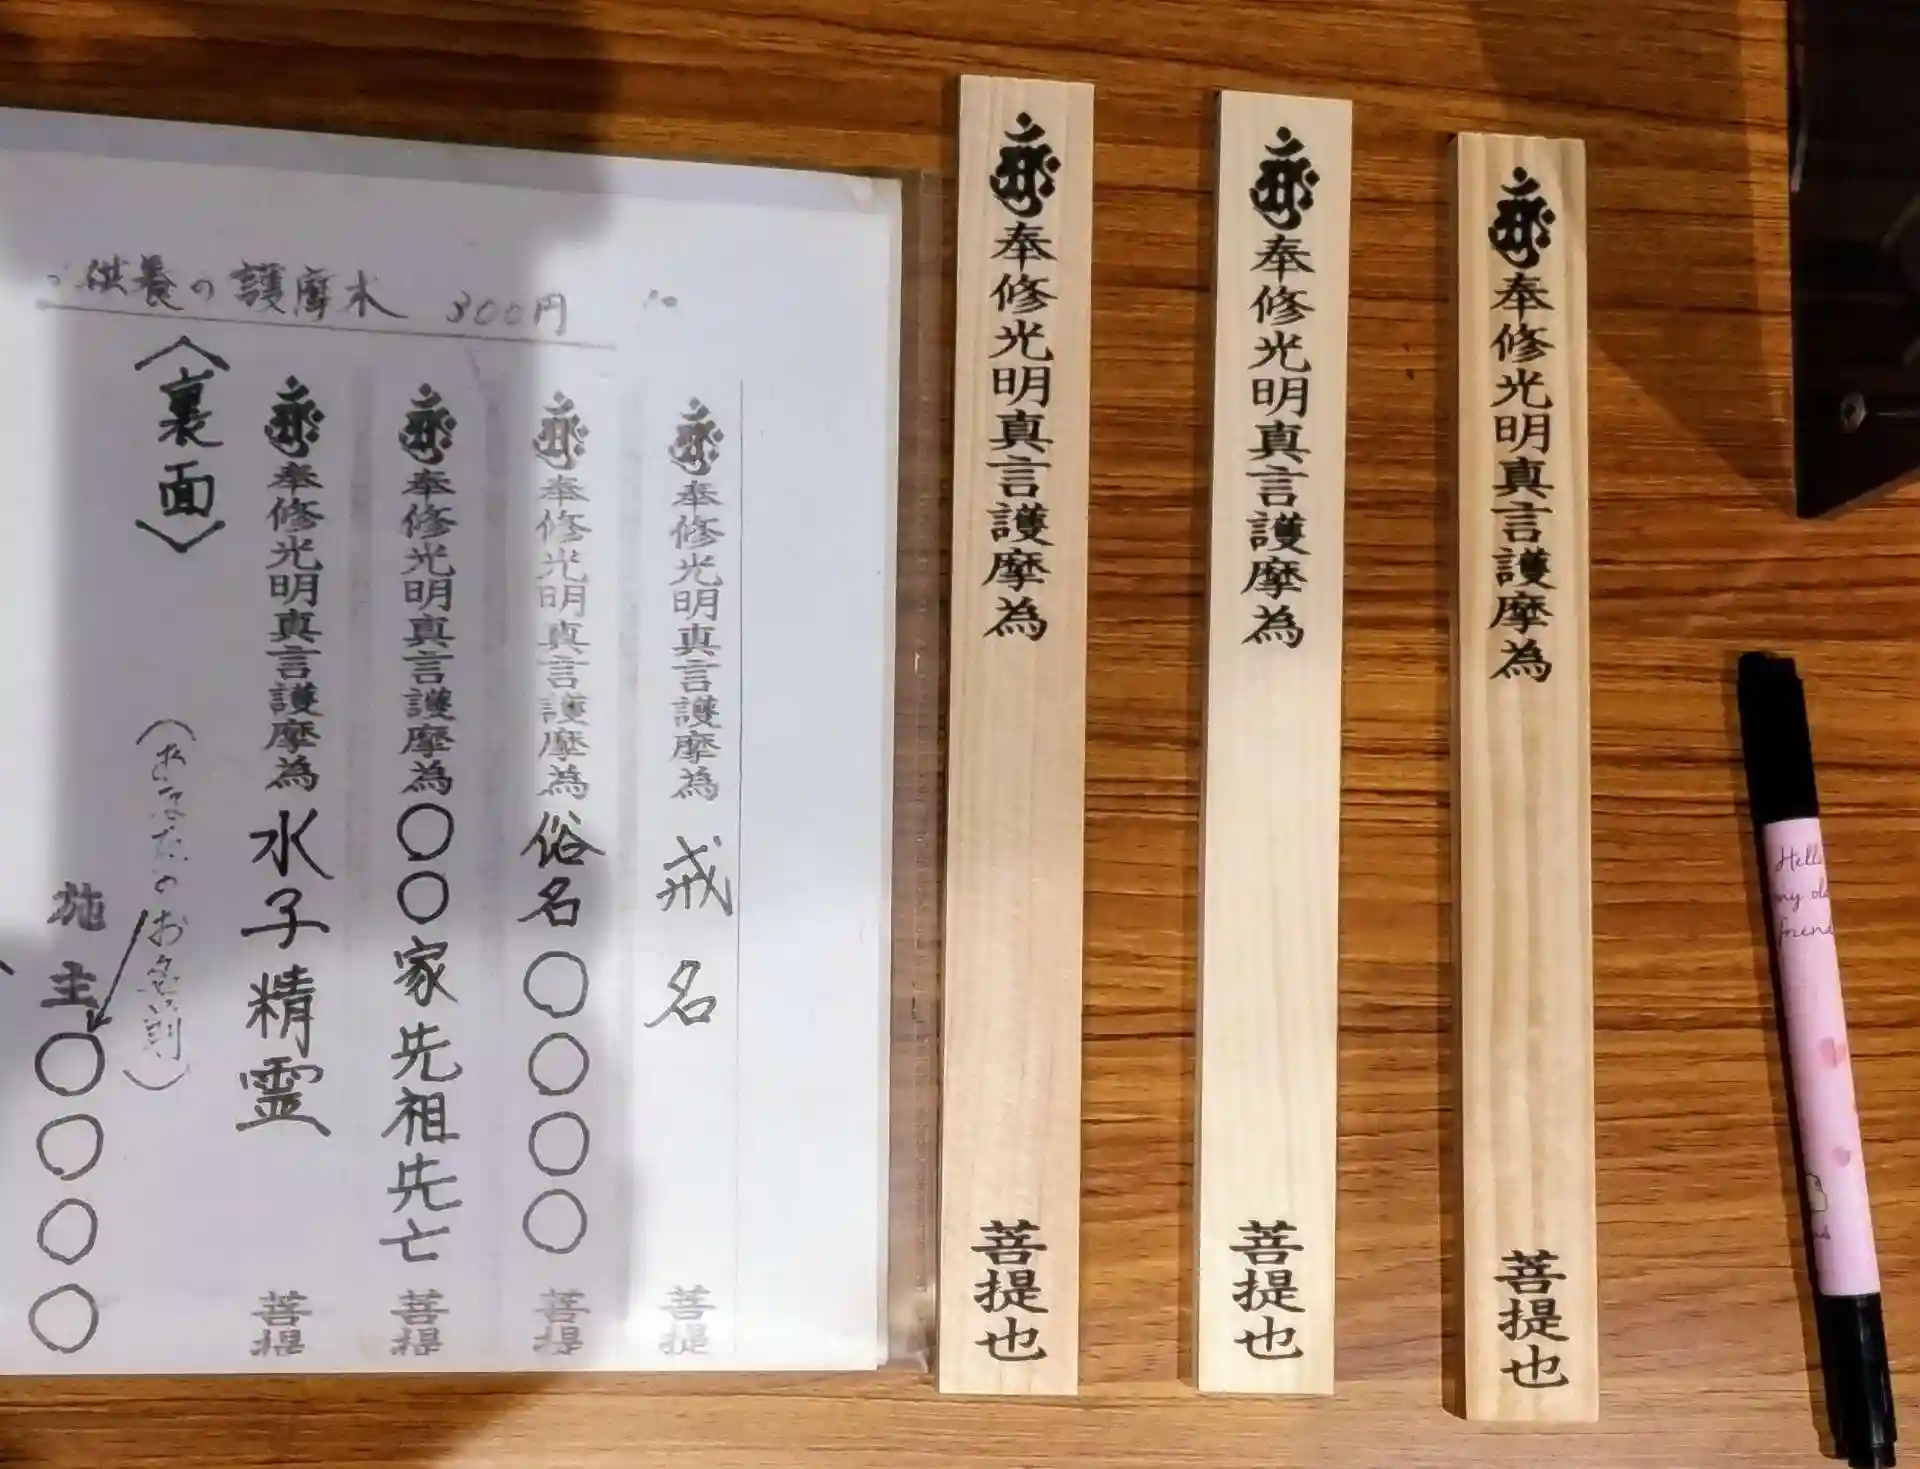 供養の護摩木 300円
奉修光明真言護摩為 戒名 菩提
奉修光明真言護摩為 俗名〇〇〇〇 菩提
奉修光明真言護摩為〇〇家先祖先亡 菩提
奉修光明真言護摩為 水子精霊 菩提
〈裏面〉
(あなたのお名前)
施主〇〇〇〇
奉修光明真言護摩為 菩提也
奉修光明真言護摩為 菩提也
奉修光明真言護摩為 菩提也
Hello
my old
friend